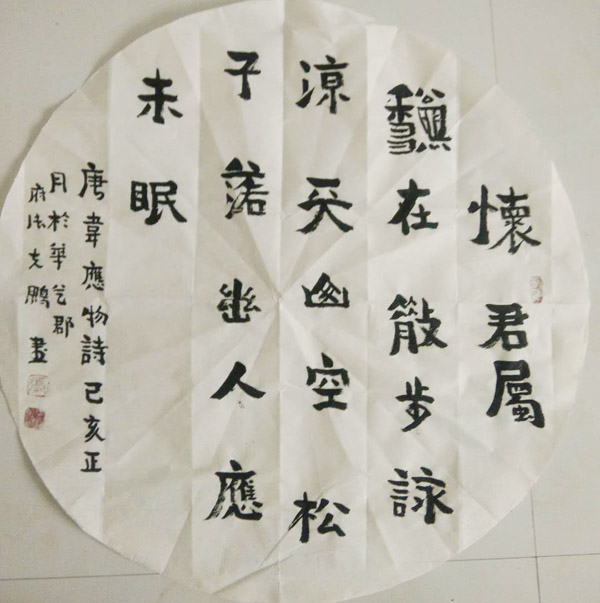 懷君屬
龝在散步詠
涼天山空松
子落幽人應
未眠
唐韋應物詩己亥正
月於華郡
府克鵬書